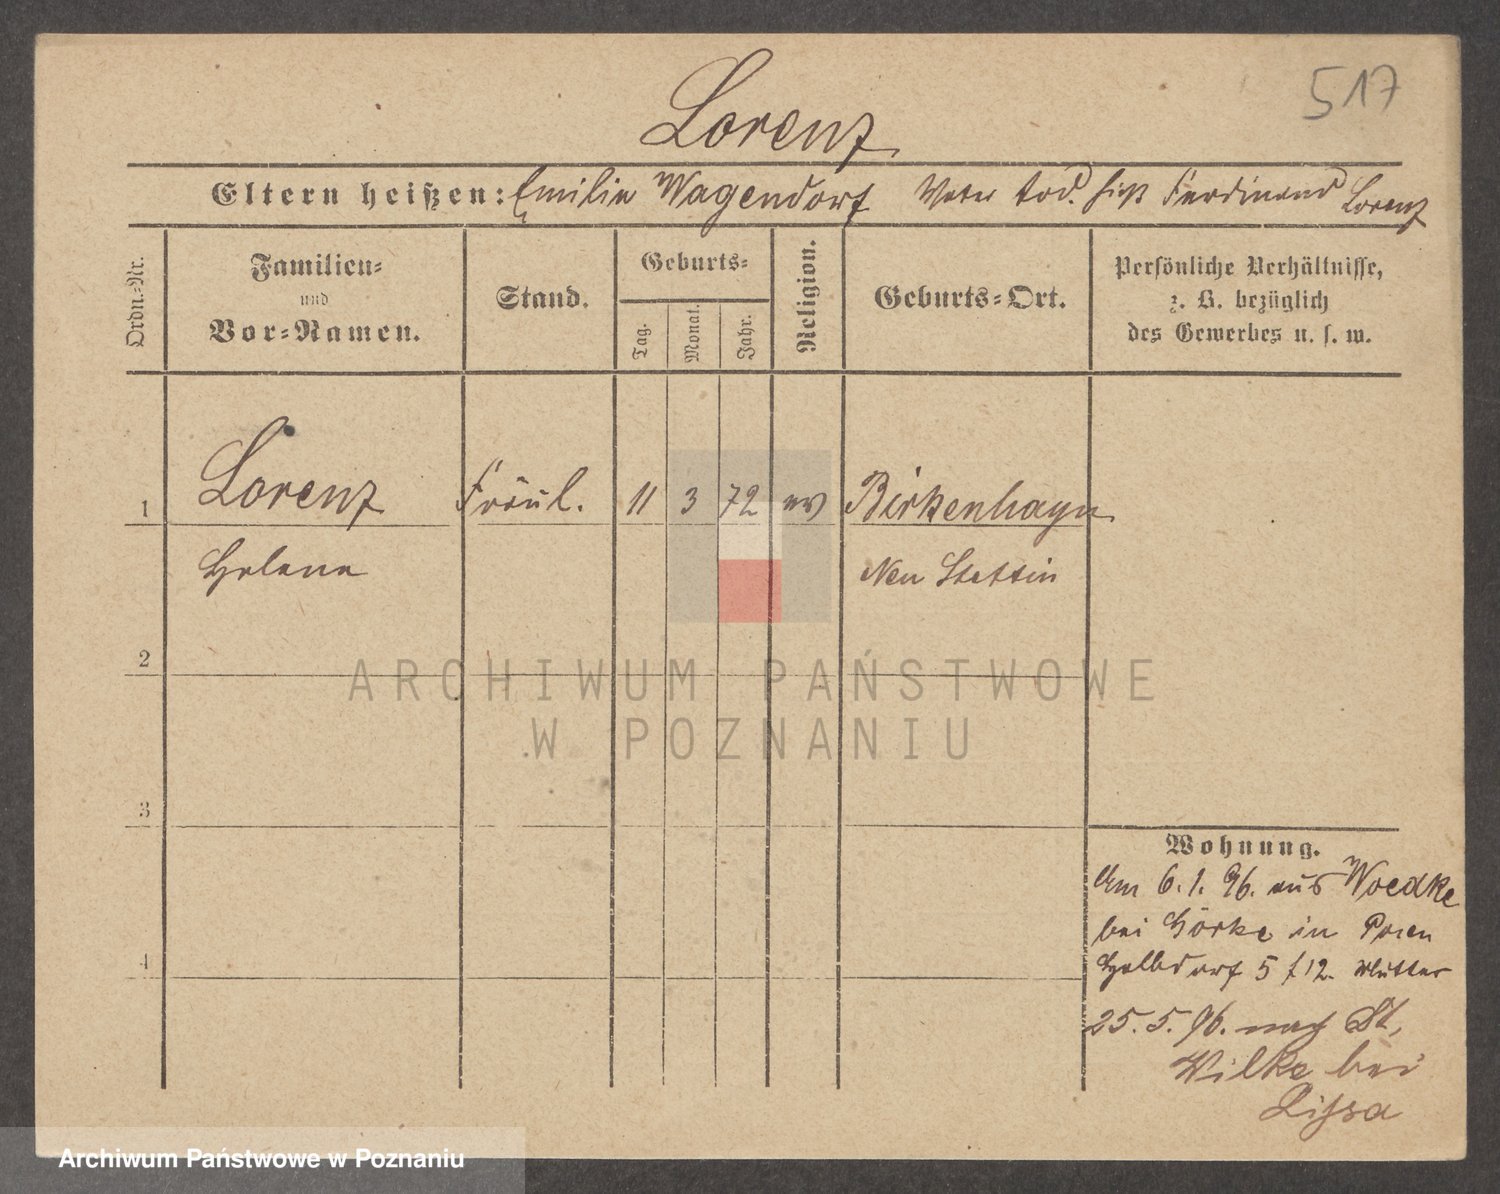 517
Lorenz
Eltern heißen: Emilie Wagendorf Vater tod. hieß Ferdinand Lorenz
Ordn.-Nr.
Familien-
und
Vor-Namen.
Stand.
Geburts-
Tag.
Monat.
Jahr.
Religion.
Geburts-Ort.
Persönliche Verhältnisse,
z. B. bezüglich
des Gewerbes u. s. w.
1 Lorenz Fräul. 11 3 72 ev Birkenhagen
Helene Neu Stettin
2
3
4
Wohnung.
Am 6. 1. 96. aus Woedke
bei Görke in Pom
Halbdorf 5 f 12. Mutter
25. 5. 96. nach St,
Wilke bei
Lissa
ARCHIWUM PAŃSTWOWE
W POZNANIU
Archiwum Państwowe w Poznaniu